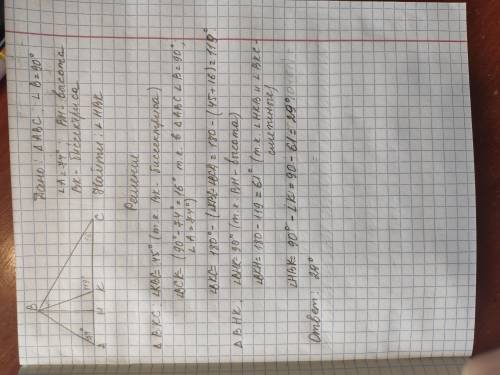 Дано: △ABC. ∠B=90°
∠A=74° BH-высота
BK-биссектриса
Найти: ∠HBK
B
74°
119°
A H K C
Решение
△BKC ∠KBC=45° (т.к. BK-биссектриса)
∠BCK=(90°-74°=16° т.к. в △ABC ∠B=90°,
∠A=74°)
∠BKC=180°-(∠KBC+∠BCK)=180-(45+16)=119°
△BHK, ∠BHK=90° (т.к. BH-высота)
∠BKH=180-119=61° (т.к. ∠HKB и ∠BKC-
смежные)
∠HBK=90°-∠K=90-61=29°
Ответ: 29°